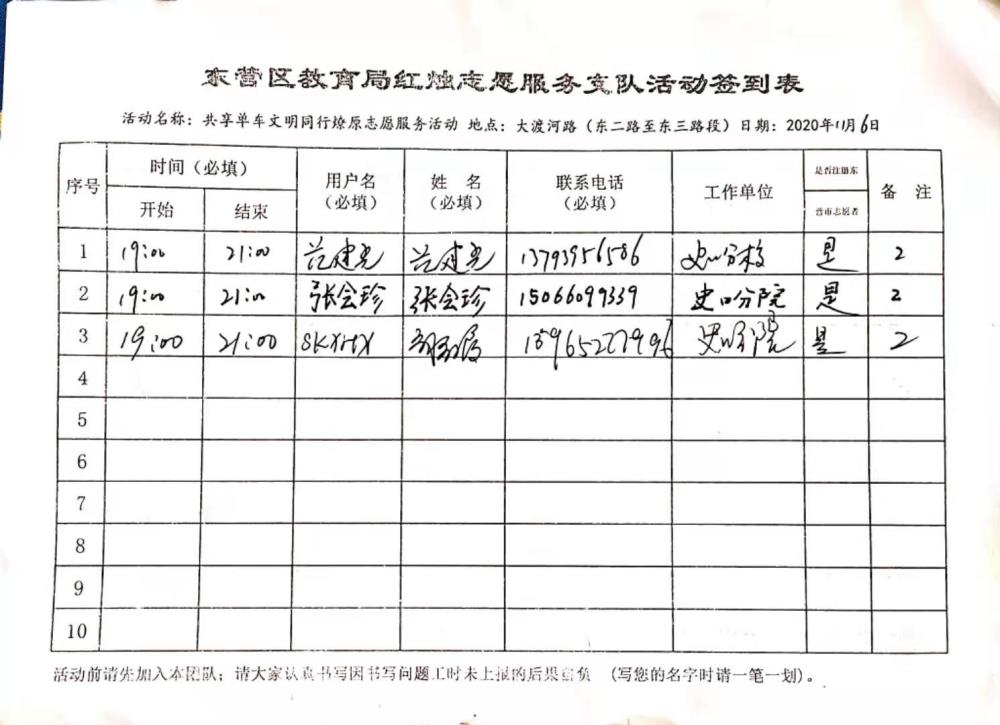 东营区教育局红烛志愿服务支队活动签到表
活动名称：共享单车文明同行燎原志愿服务活动 地点：大渡河路（东二路至东三路段）日期：2020年11月6日
序号 时间（必填） 用户名（必填） 姓名（必填） 联系电话（必填） 工作单位 是否注册东营市志愿者 备注
开始 结束
1 19:00 21:00 范建光 范建光 13793956586 史口分校 是 2
2 19:00 21:00 张会珍 张会珍 15066099339 史口分院 是 2
3 19:00 21:00 史口分院 是 2
4
5
6
7
8
9
10
活动前请先加入本团队；请大家认真书写因书写问题工时未上报的后果自负 （写您的名字时请一笔一划）。